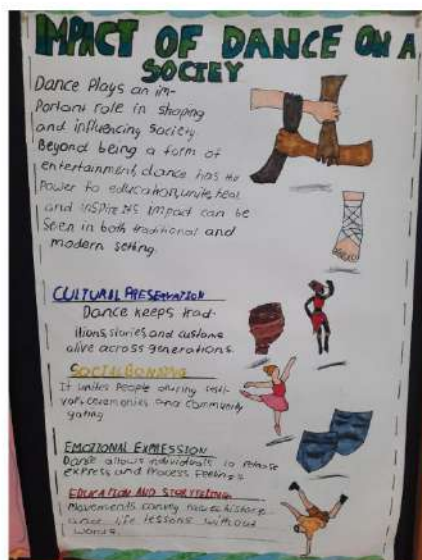 IMPACT OF DANCE ON A
SOCIEY
Dance Plays an im-
Portant role in shaping
and influencing society
Beyond being a form of
entertainment, dance has the
Power to education, unite, heal
and inspire its impact can be
seen in both traditional and
modern setting.
CULTURAL PRESERVATION
Dance keeps trad-
itions, stories, and customs
alive across generations.
SOCIAL BONDING
It unites People during festi-
vals, ceremonies and community
gating
EMOTIONAL EXPRESSION
Dance allows individuals to release
express and Process Feelings
EDUCATION AND STORYTELLING
Movements convey history
and life lessons without
words.